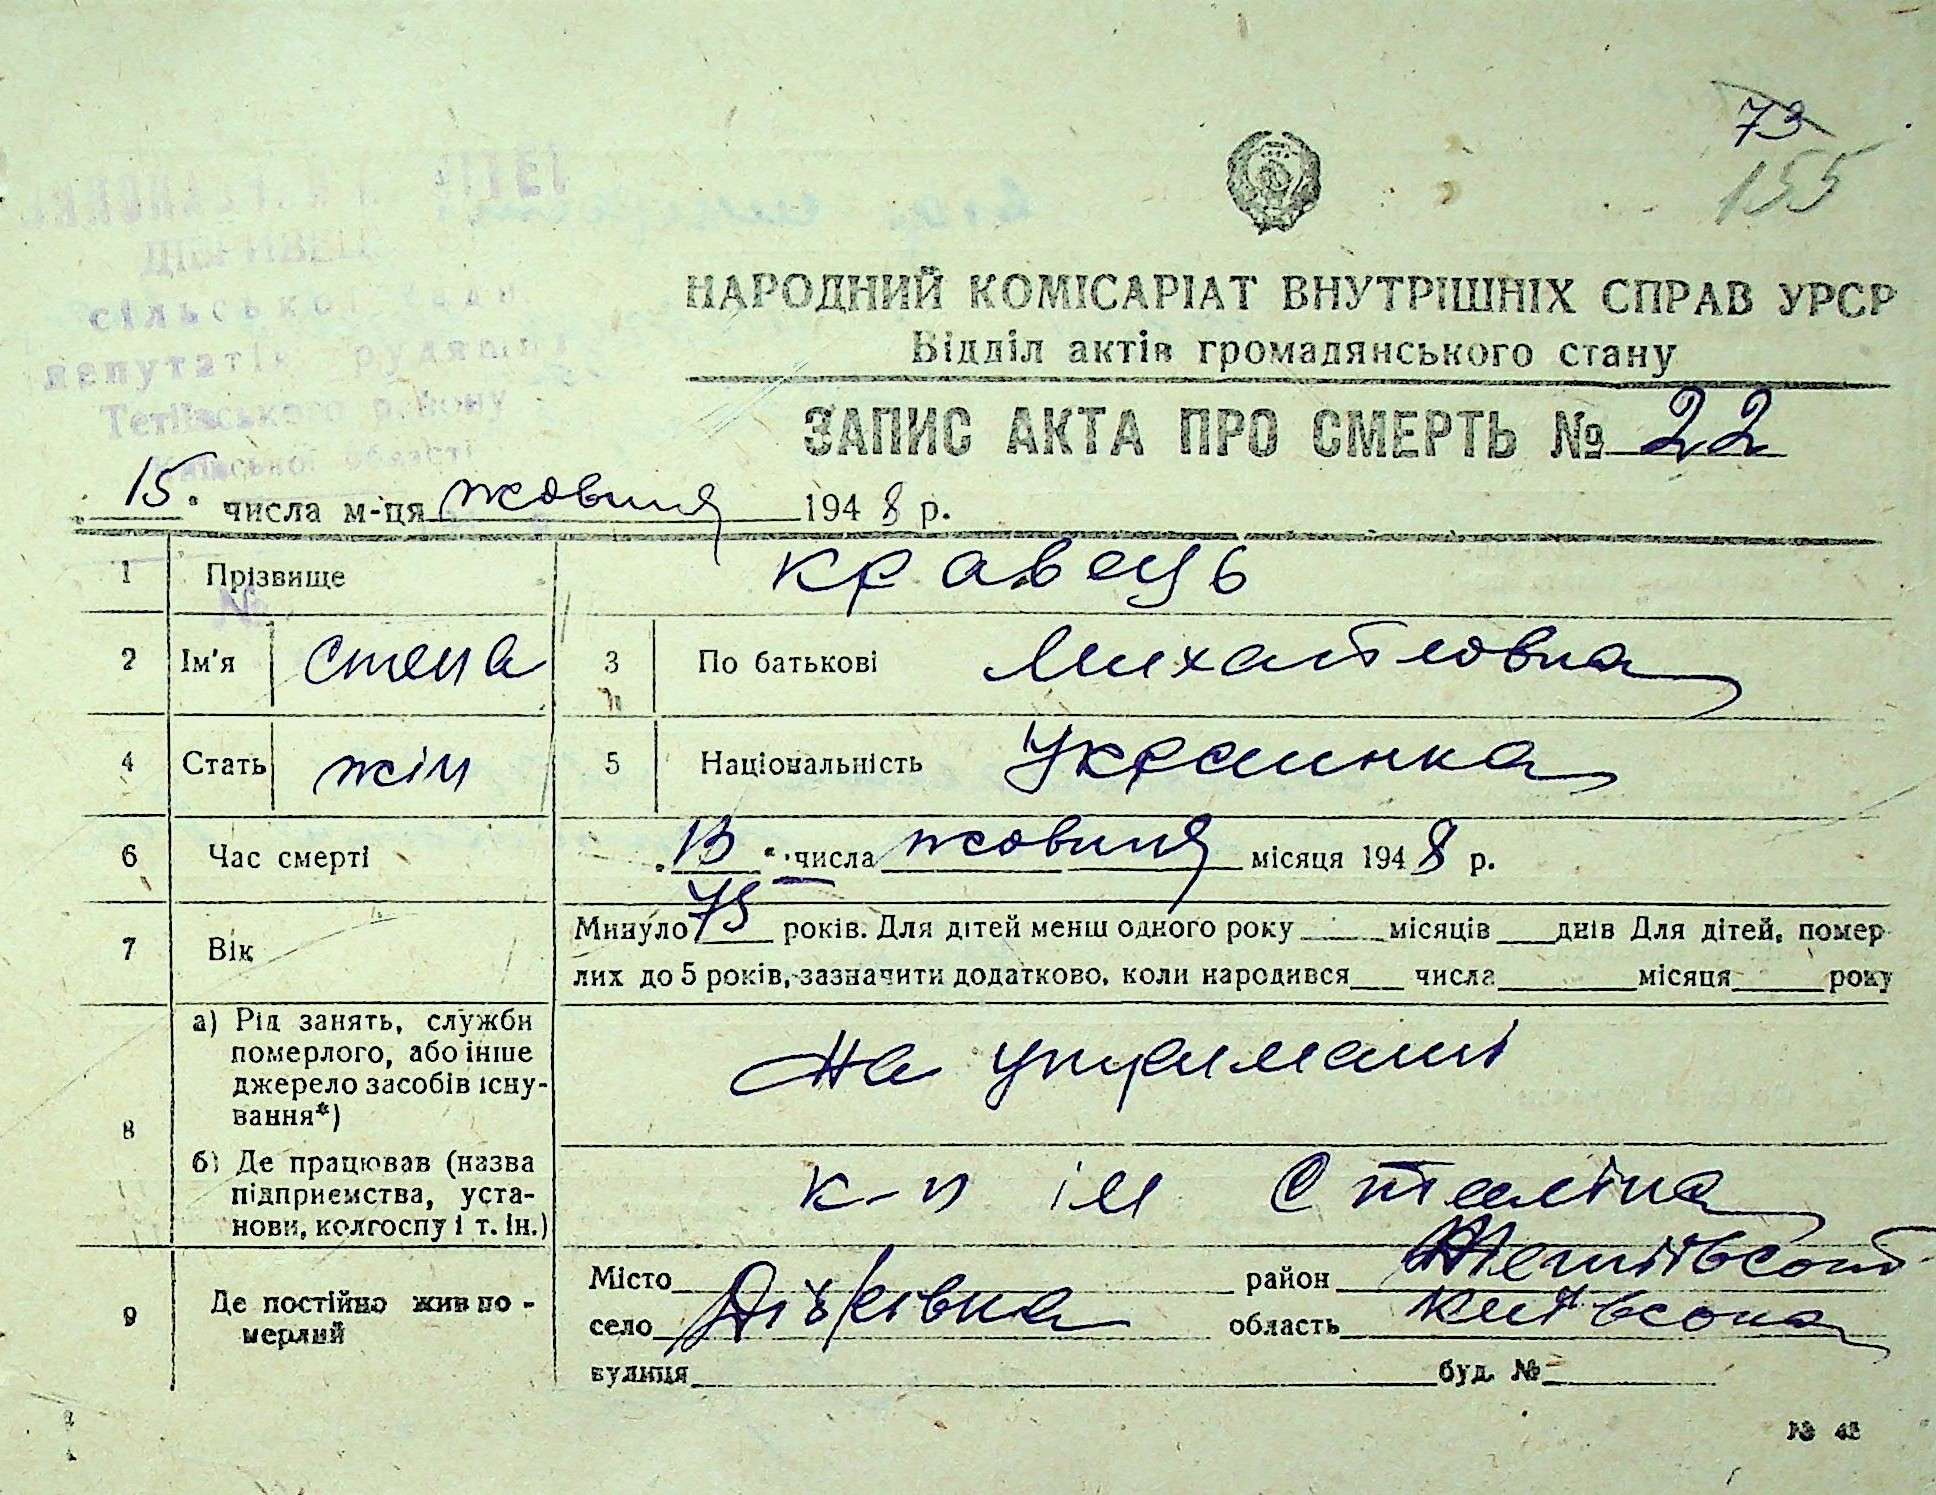 73
155
НАРОДНИЙ КОМІСАРІАТ ВНУТРІШНІХ СПРАВ УРСР
Відділ актів громадянського стану
сільської ради
депутатів трудящих
Тетіївського району
Київської області
ЗАПИС АКТА ПРО СМЕРТЬ № 22
15 числа м-ця жовтня 1948 р.
1 Прізвище Кравець
№
2 Ім'я Степа 3 По батькові Михайловна
4 Стать жін 5 Національність Українка
6 Час смерті „13“ числа жовтня місяця 1948 р.
7 Вік Минуло 75 років. Для дітей менш одного року ___ місяців ___ днів Для дітей, помер-
лих до 5 років, зазначити додатково, коли народився ___ числа ___ місяця ___ року
8 а) Рід занять, служби
померлого, або інше
джерело засобів існу-
вання*)
На утриманні
б) Де працював (назва
підприємства, уста-
нови, колгоспу і т. ін.)
к-п ім Сталіна
9 Де постійно жив по-
мерлий
Місто ___ район Тетіївской
село Дібрівка область Київсокая
вулиця ___ буд. № ___